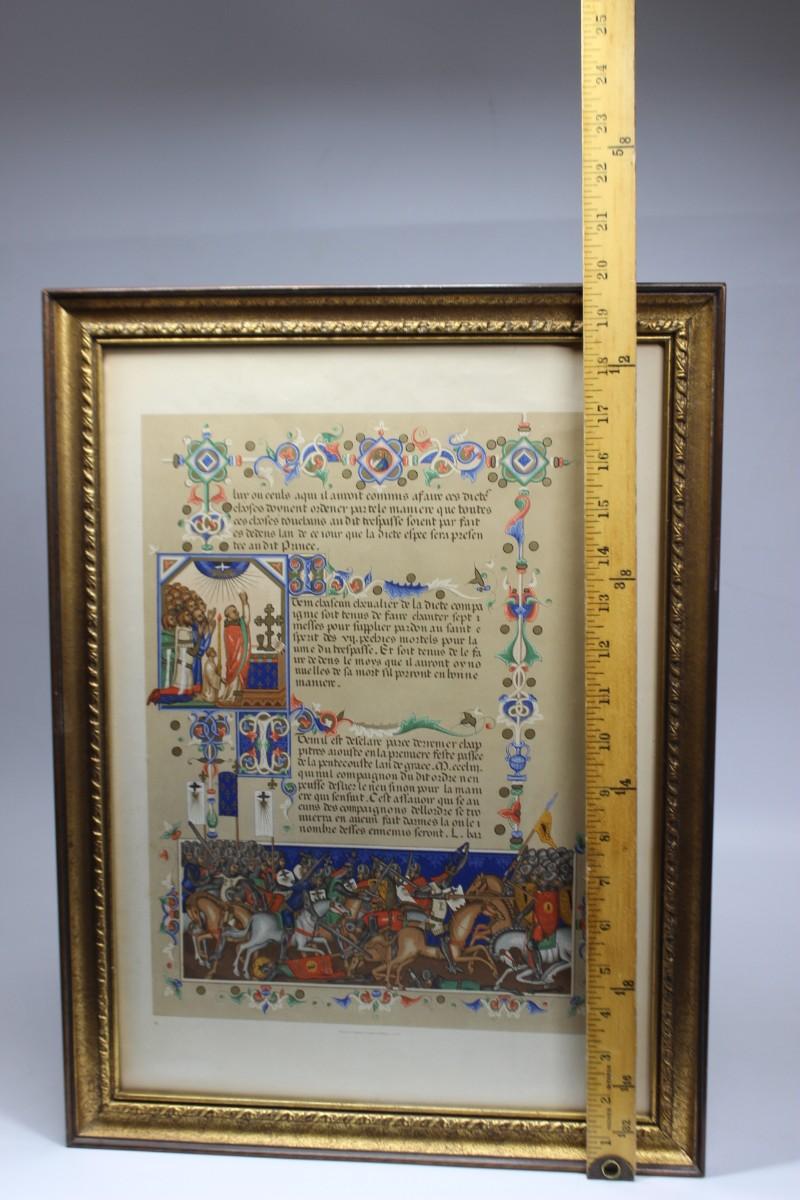 lur ou ceuls aqui il auroit commis afaire ces dictes
choses doyuent ordener par tele maniere que toutes
ces choses touchans au dit trespasse soient par fait
es dedens lan de ce iour que la dicte espee sera presen
tee au dit Prince.
Item chascun cheualier de la dicte compa
ignie soit tenus de faire chanter sept i
messes pour supplier pardon au saint e
sperit des vij. pechies mortels pour la
ame du trespasse. Et soit tenus de le fa
ire de dens le moys que il auront oy no
nuelles de sa mort sil porront en bonne
maniere.
Item il est desclare par ce derrenier chap
pitres aiouste en la premiere feste passee
de la pentecouste lan de grace. M. ccc liij.
qui nul compaignon du dit ordre nen
peusse deslier le neu sinon pour la mani
ere qui sensuit. C est assauoir qui se au
cuns des compaignons de lordre se tro
uuerra en aucun fait darmes la on le i
nombre desses ennemis seront. L. bar
25
24
23
5/8
22
21
20
19
18
1/2
17
16
15
14
3/8
13
12
11
10
9
1/4
8
7
6
5
1/8
4
3
1/16
2
1
1/32